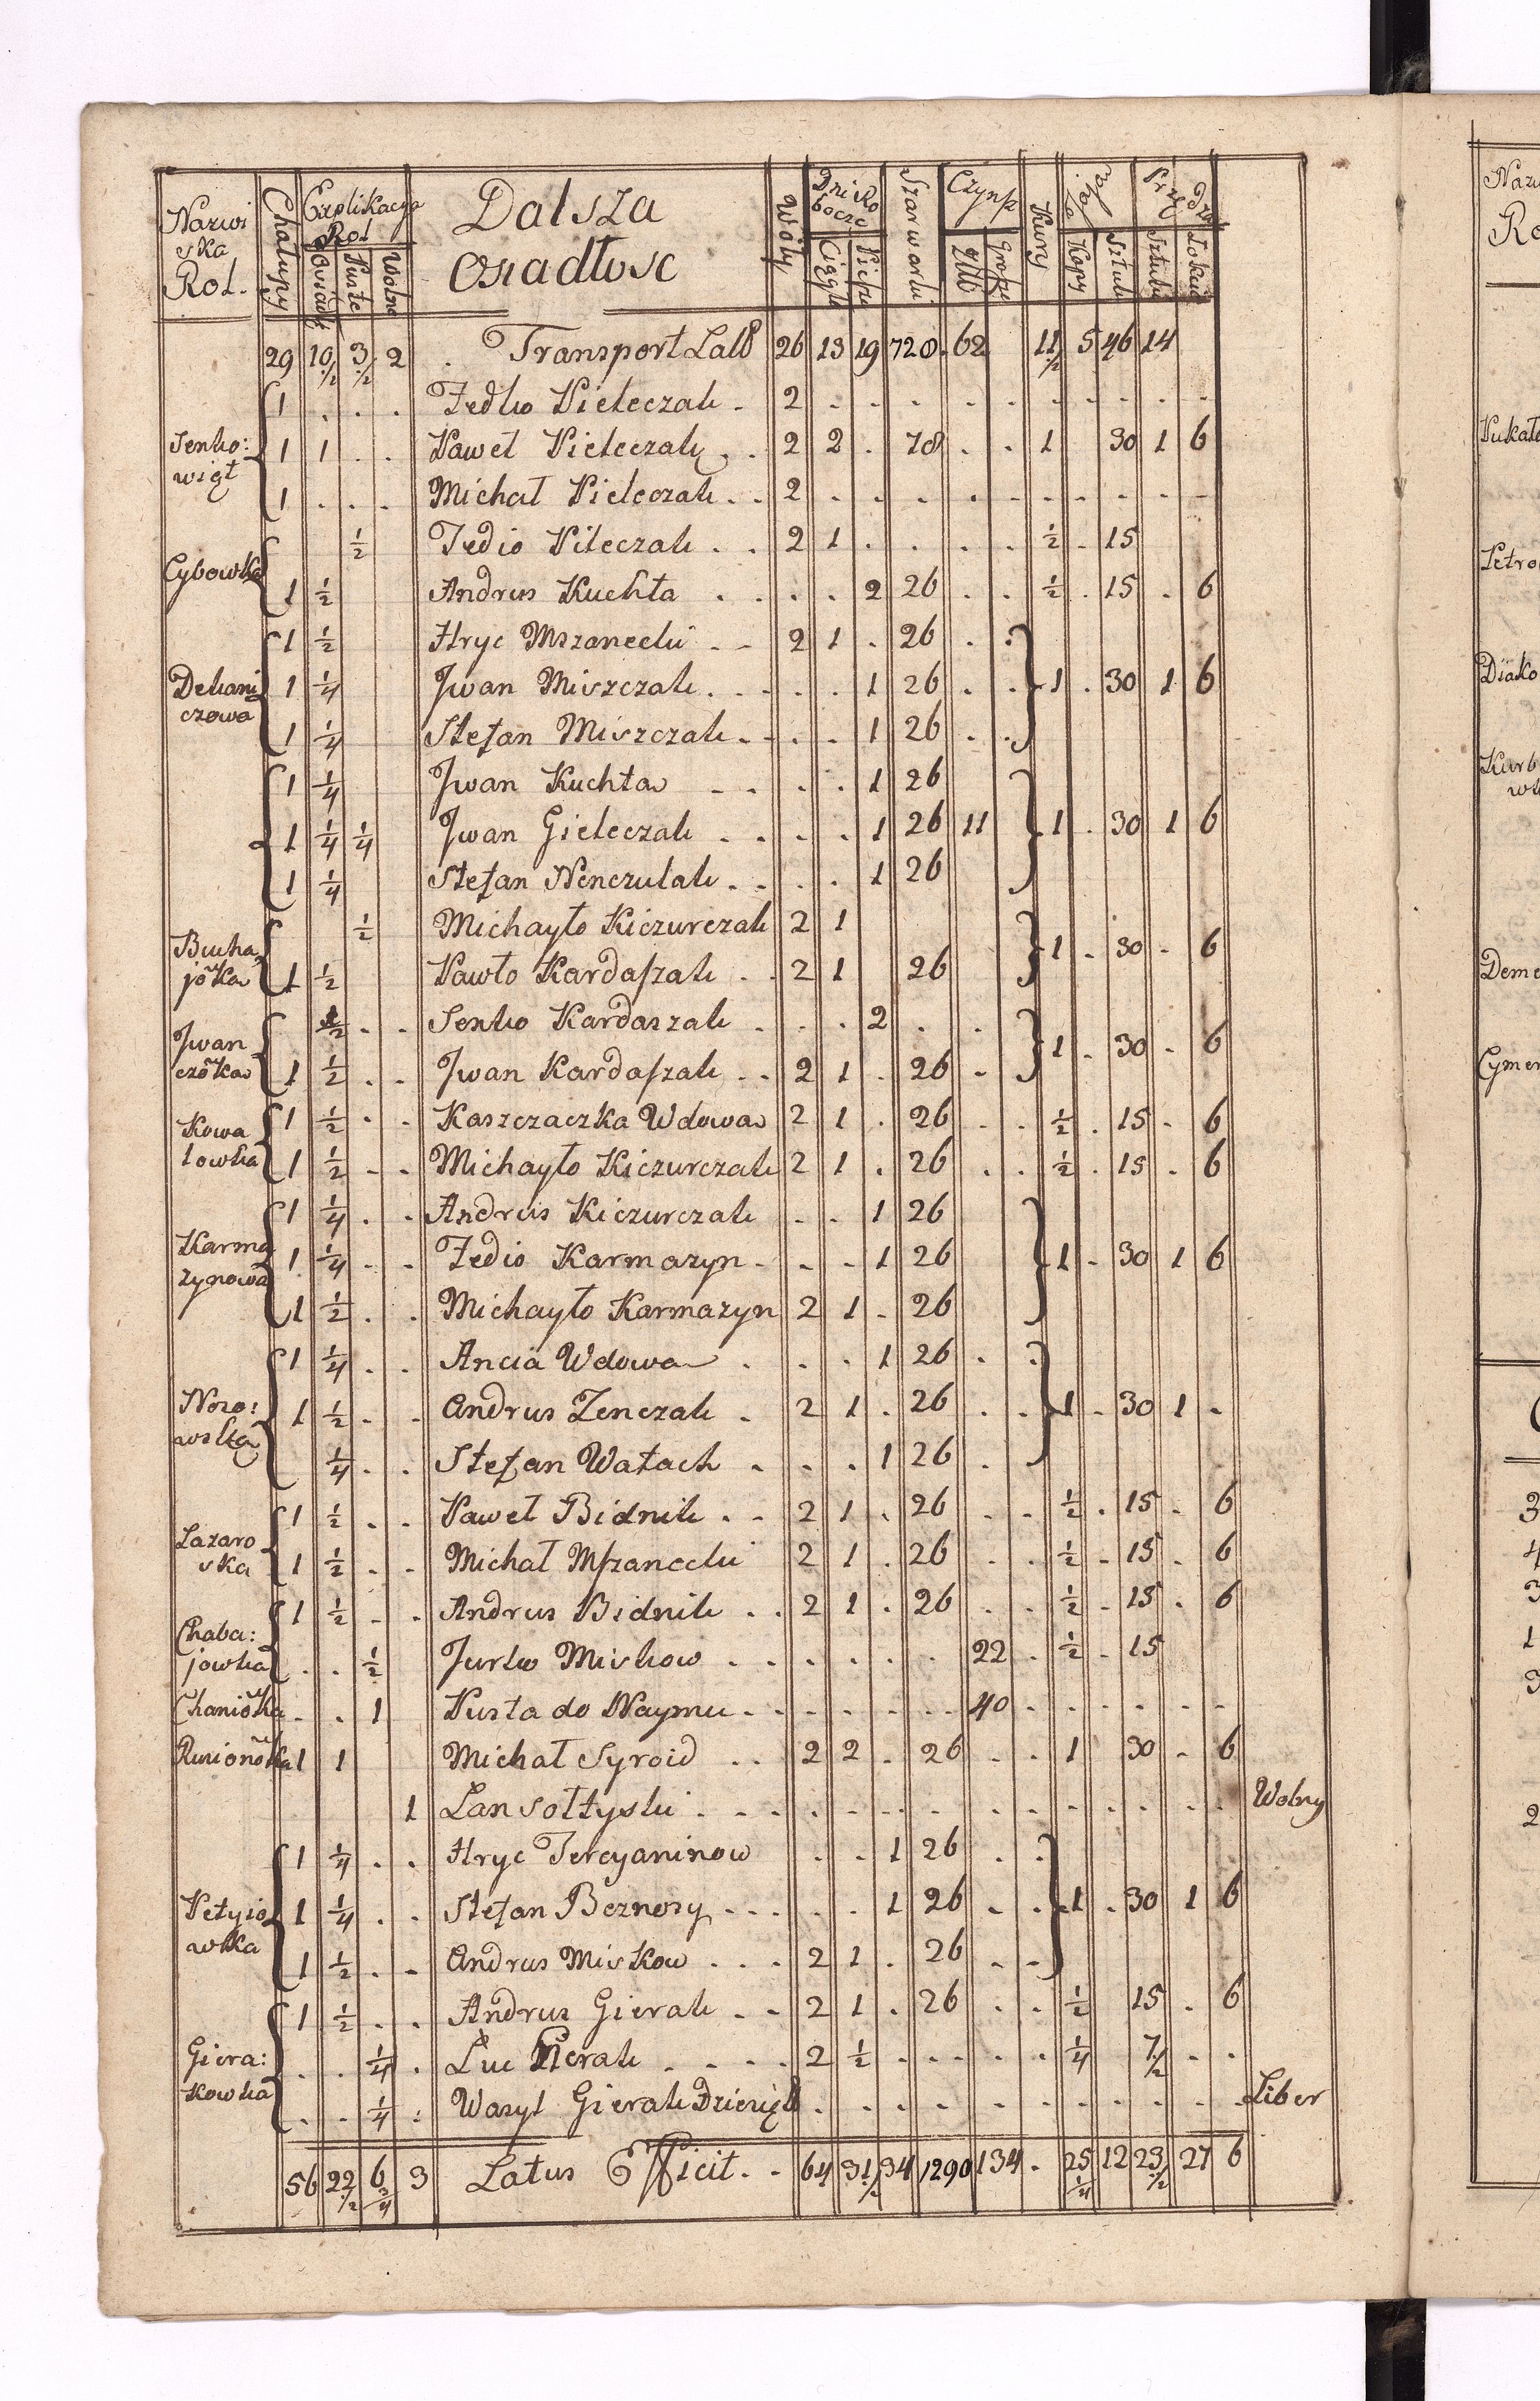 Nazwi
ska
Rol.
Chałupy
Explikacya
Rol
Osiadł
Puste
Wolne
Dalsza
osiadłosc
Woły
Dni Ro
bocze
Ciągłe
Piesze
Szarwarki
Czynsz
Złł
Grosze
Kury
Jaja
Kopy
Sztuk
Przę
dza
Sztuki
Łokcie
29 10/½ 3/½ 2 Transport Lat 26 13 19 720 62 11/½ 5 46 14
1 . . . Fedko Pieleczak 2
Senko:
wiąt
1 1 . . Paweł Pieleczak 2 2 . 78 . . 1 30 1 6
1 . . . Michał Pieleczak 2
Cybowka
½ Fedio Pileczak 2 1 . . . . ½ . 15
1 ½ Andrus Kuchta . . . 2 26 . . ½ . 15 . 6
Dekani
czowa
1 ½ Hryc Mszanecki 2 1 . 26 . .
1 ¼ Jwan Miszczak . . . 1 26 . . 1 . 30 1 6
1 ¼ Stefan Miszczak . . . 1 26 . .
1 ¼ Jwan Kuchta . . . 1 26
1 ¼ ¼ Jwan Gieleczak . . . 1 26 11 1 . 30 1 6
1 ¼ Stefan Nenczulak . . . 1 26
Bucha
jowka
½ Michayło Kiczurczak 2 1
1 ½ Pawło Kardaszak 2 1 26 1 . 30 . 6
Jwan
czowka
½ . . Senko Kardaszak . . . 2 . .
1 ½ . . Jwan Kardaszak 2 1 . 26 . 1 . 30 . 6
Kowa
lowka
1 ½ . . Kaszczaczka Wdowa 2 1 . 26 . . ½ . 15 . 6
1 ½ . . Michayło Kiczurczak 2 1 . 26 . . ½ . 15 . 6
Karma
zynowa
1 ¼ . . Andrus Kiczurczak . . 1 26
1 ¼ . . Fedio Karmazyn . . . 1 26 1 . 30 1 6
1 ½ . . Michayło Karmazyn 2 1 . 26
Noro:
wską
1 ¼ . . Ancia Wdowa . . . 1 26 . .
1 ½ . . Andrus Zenczak . 2 1 . 26 . . 1 . 30 1 .
¼ . . Stefan Wałach . . . 1 26 .
Lazaro
ska
1 ½ . . Paweł Bidnik . . 2 1 . 26 . . ½ . 15 . 6
1 ½ . . Michał Mszanecki 2 1 . 26 . . ½ . 15 . 6
Chaba:
jowka
1 ½ . . Andrus Bidnik . . 2 1 . 26 . . ½ . 15 . 6
. . ½ Jurko Miskow . . . . . . 22 . ½ . 15
Chaniowka . . 1 Pusta do Naymu . . . . . . 40
1 1 Michał Syroid . . 2 2 . 26 . . 1 30 . 6
1 Lan sołtyski . . . . . . . . . . . . Wolny
Petyio
wka
1 ¼ . . Hryc Tercyaninow . . 1 26 . .
1 ¼ . . Stefan Beznosy . . . . . 1 26 . . 1 . 30 1 6
1 ½ . . Andrus Miskow . . . 2 1 . 26 . .
Giera:
kowka
1 ½ . . Andrus Gierak . . 2 1 . 26 . . ½ 15 . 6
. . ¼ . Luc Gierak . . . . 2 ½ . . . . . ¼ 7/½ . .
. . ¼ . Wasyl Gierak . . . . . . . . . . . Liber
56 22/½ 6/¾ 3 Latus Efficit . . 64 31/½ 34 1290 134 . 25/¼ 12 23/½ 27 6